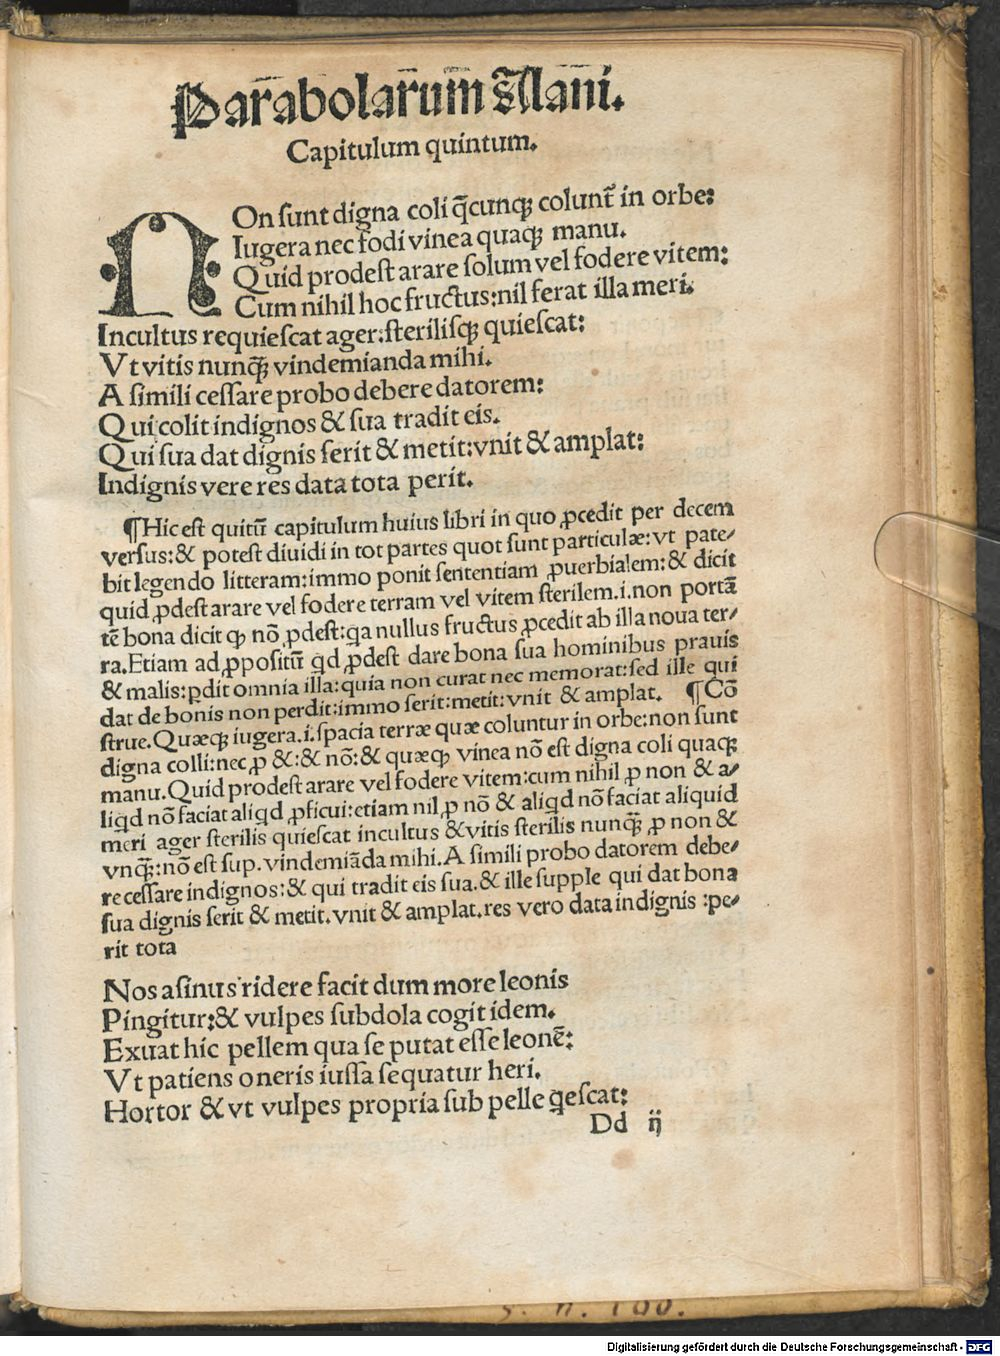 Parabolarum Alani.
Capitulum quintum.
NOn sunt digna coli q̄cunqꝫ colunt᷑ in orbe:
Iugera nec fodi vinea quaqꝫ manu.
Quid prodest arare solum vel fodere vitem:
Cum nihil hoc fructus:nil ferat illa meri.
Incultus requiescat ager:sterilisqꝫ quiescat:
Vt vitis nunq̄ꝫ vindemianda mihi.
A simili cessare probo debere datorem:
Qui colit indignos & sua tradit eis.
Qui sua dat dignis serit & metit:vnit & amplat:
Indignis vere res data tota perit.
¶Hic est quitū capitulum huius libri in quo ꝓcedit per decem
versus:& potest diuidi in tot partes quot sunt particulæ:vt pate/
bit legendo litteram:immo ponit sententiam ꝓuerbialem:& dicit
quid ꝓdest arare vel fodere terram vel vitem sterilem.i.non portā
tē bona dicit qꝫ nō ꝓdest:qa nullus fructus ꝓcedit ab illa noua ter/
ra.Etiam ad ꝓpositū qd ꝓdest dare bona sua hominibus prauis
& malis:ꝑdit omnia illa:quia non curat nec memorat:sed ille qui
dat de bonis non perdit:immo serit:metit:vnit & amplat. ¶Cō
strue.Quæqꝫ iugera.i.spacia terræ quæ coluntur in orbe:non sunt
digna colli:nec ꝓ &:& nō:& quæqꝫ vinea nō est digna coli quaqꝫ
manu.Quid prodest arare vel fodere vitem:cum nihil ꝓ non & a/
liqd nō faciat aliqd ꝓficui:etiam nil ꝓ nō & aliqd nō faciat aliquid
meri ager sterilis quiescat incultus & vitis sterilis nunq̄ꝫ ꝓ non &
vnq̄ꝫ:nō est sup.vindemiāda mihi.A simili probo datorem debe/
re cessare indignos:& qui tradit eis sua.& ille supple qui dat bona
sua dignis serit & metit.vnit & amplat.res vero data indignis :pe/
rit tota
Nos asinus ridere facit dum more leonis
Pingitur:& vulpes subdola cogit idem.
Exuat hic pellem qua se putat esse leonē:
Vt patiens oneris iussa sequatur heri.
Hortor & vt vulpes propria sub pelle qescat:
Dd ij
Digitalisierung gefördert durch die Deutsche Forschungsgemeinschaft - DFG